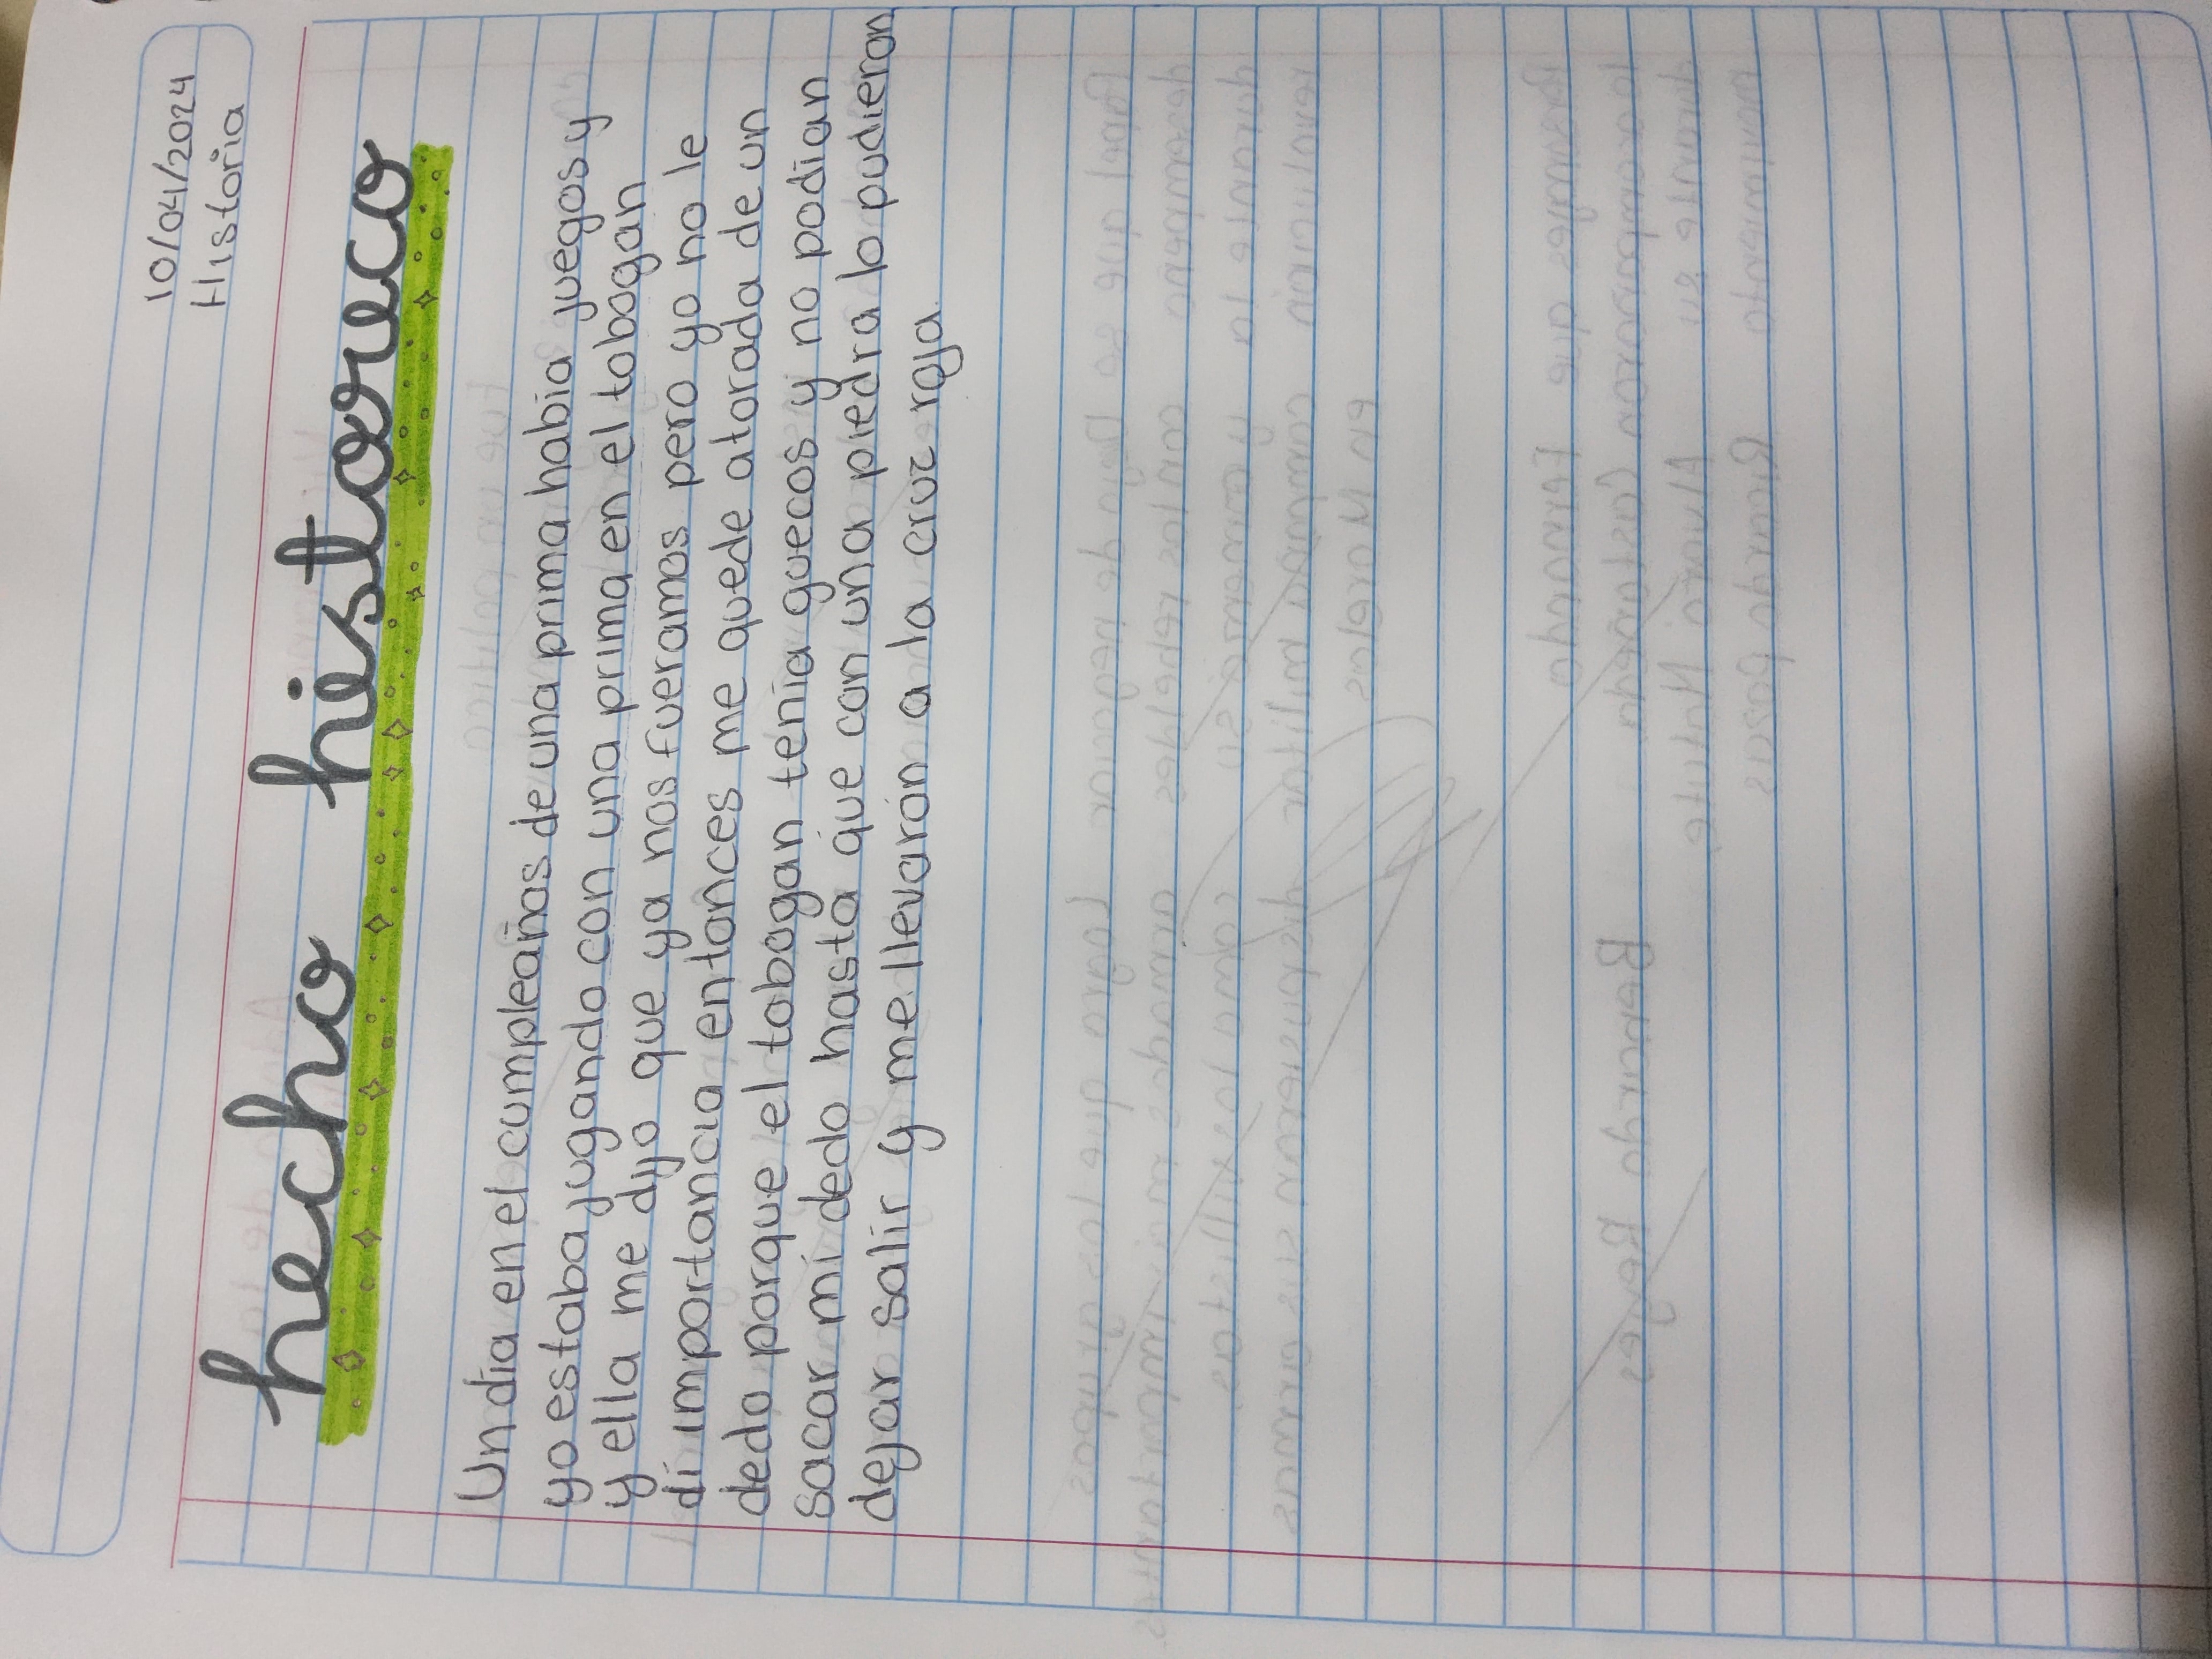 10/04/2024
Historia
hecho historeco
Un dia en el cumpleaños de una prima habia juegos y
yo estaba jugando con una prima en el tobogan
y ella me dijo que ya nos fueramos pero yo no le
di importancia entonces me quede atorada de un
dedo porque el tobogan tenia guecos y no podian
sacar mi dedo hasta que con una piedra lo pudieron
dejar salir y me llevaron a la cruz roja.